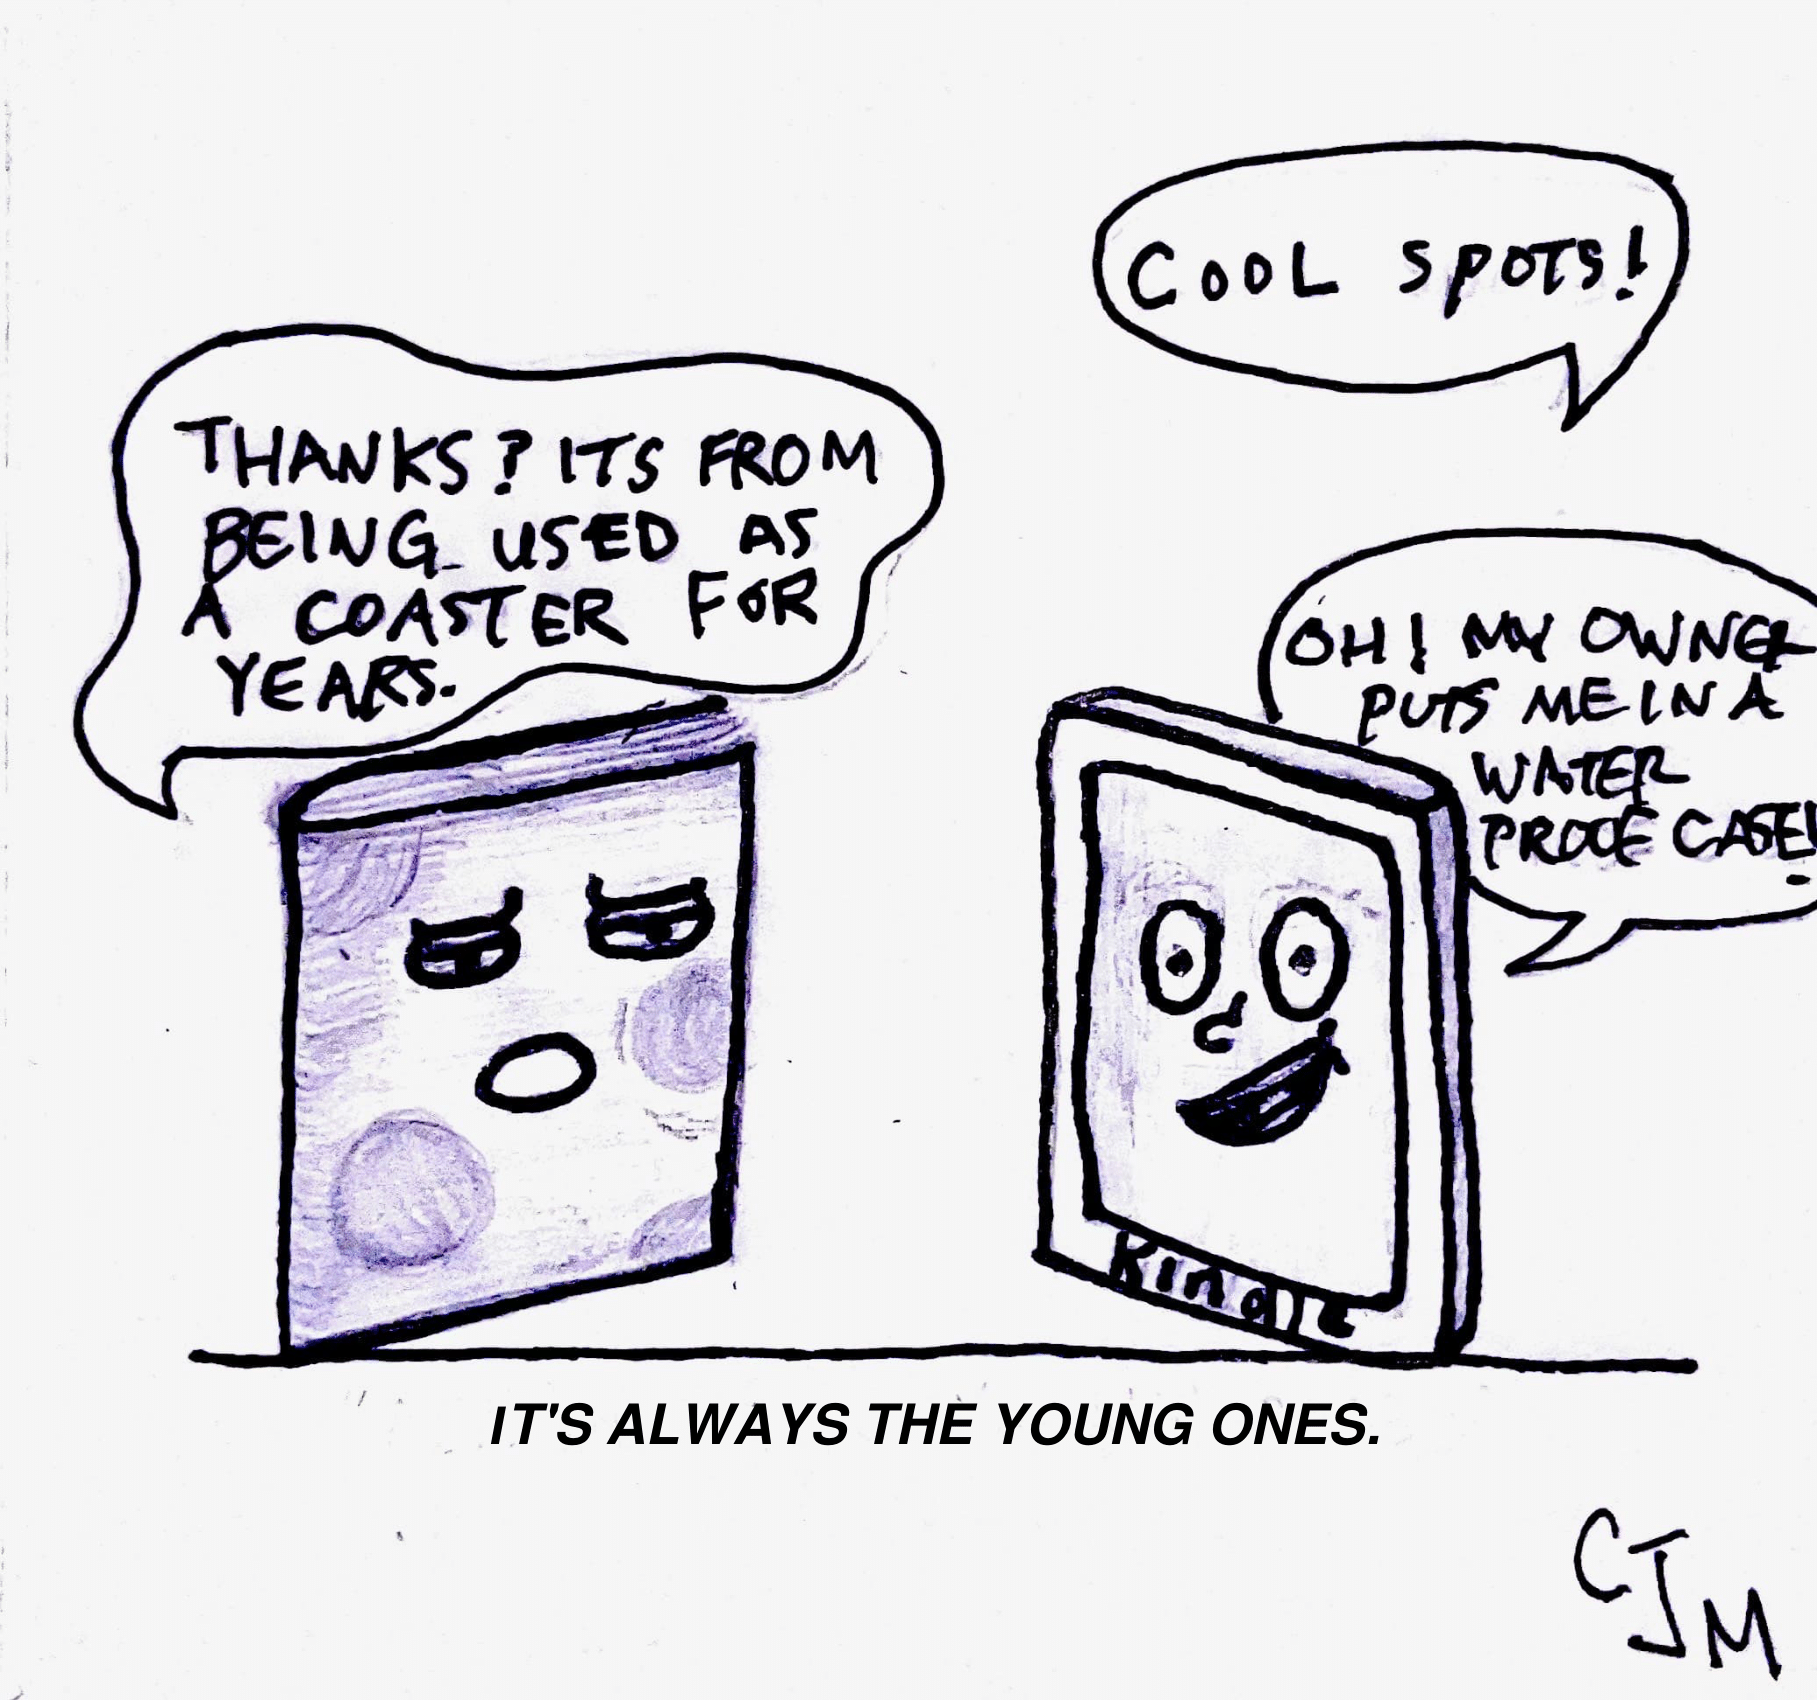 COOL SPOTS!
THANKS? ITS FROM
BEING USED AS
A COASTER FOR
YEARS.
OH! MY OWNER
PUTS ME IN A
WATER
PROOF CASE!
Kindle
IT'S ALWAYS THE YOUNG ONES.
CJM